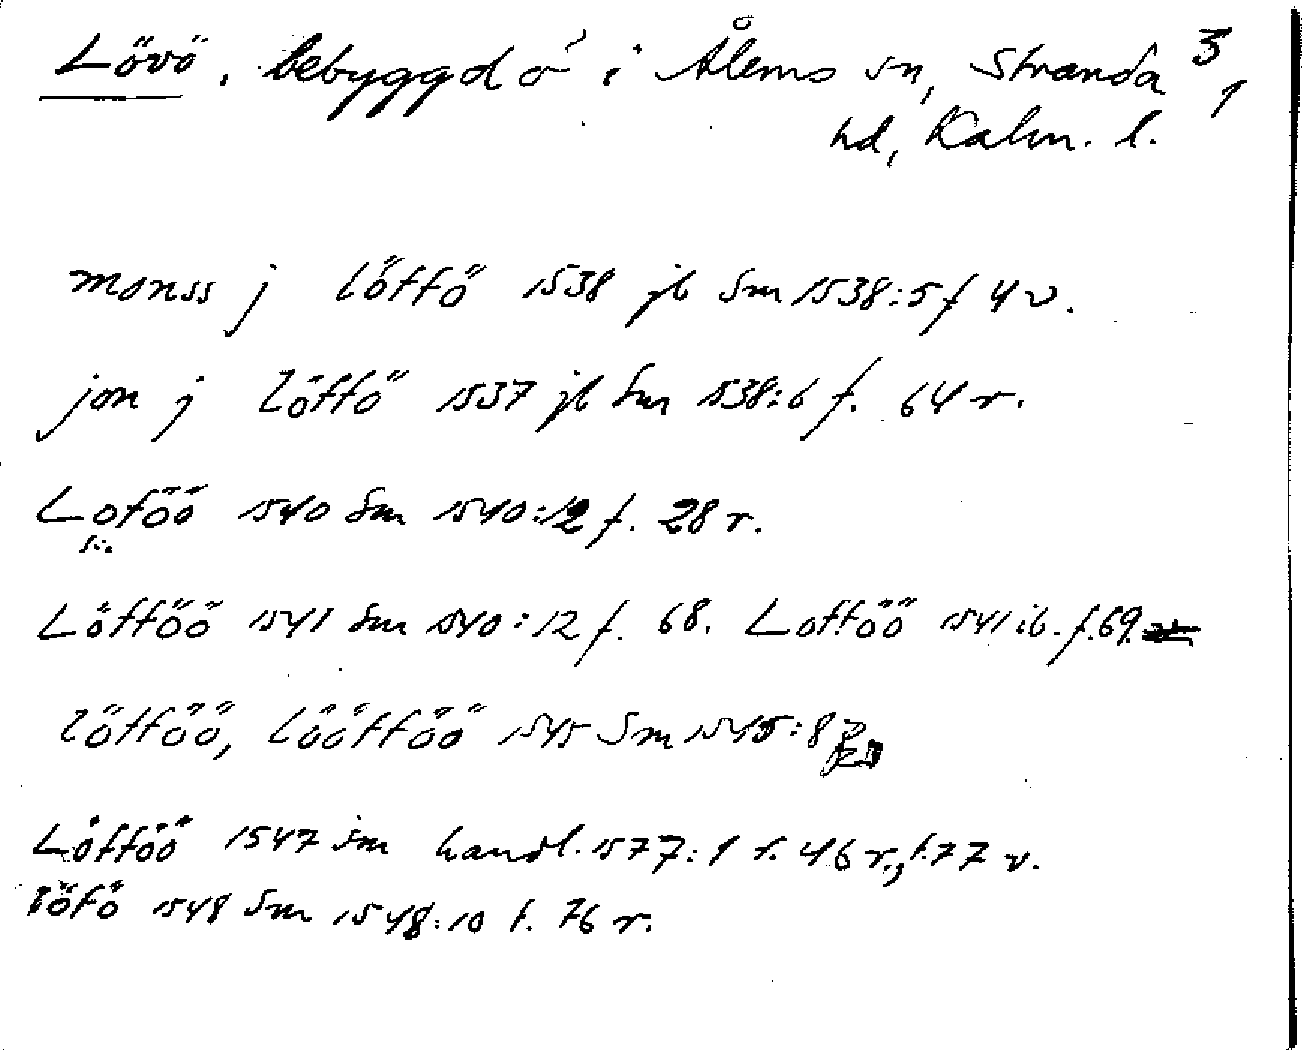 Lövö, bebyggd ö i Ålems sn, Stranda 3,1
hd, Kalm. l.
monss j löffö 1538 jb Sm 1538:5 f 4 v.
jon j löffö 1537 jb Sm 1538:6 f. 64 r.
Loföö 1540 Sm 1540:12 f. 28 r.
Löfföö 1541 Sm 1540:12 f. 68. Lofföö 1541 ib. f. 69.
löfföö, lööfföö 1545 Sm 1545:8
Löfföö 1547 Sm handl. 1577:1 f. 46 r., f. 77 v.
löfö 1548 Sm 1548:10 f. 76 r.